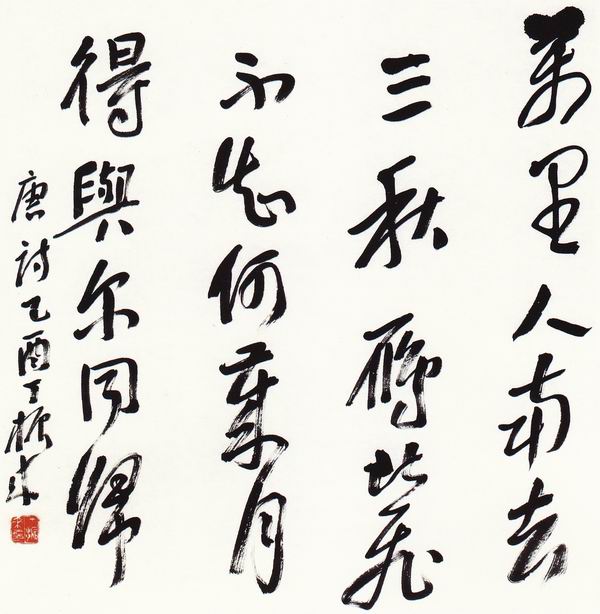 萬里人南去
三秋雁北飛
不知何歲月
得與尔同歸
唐詩乙酉丁振來